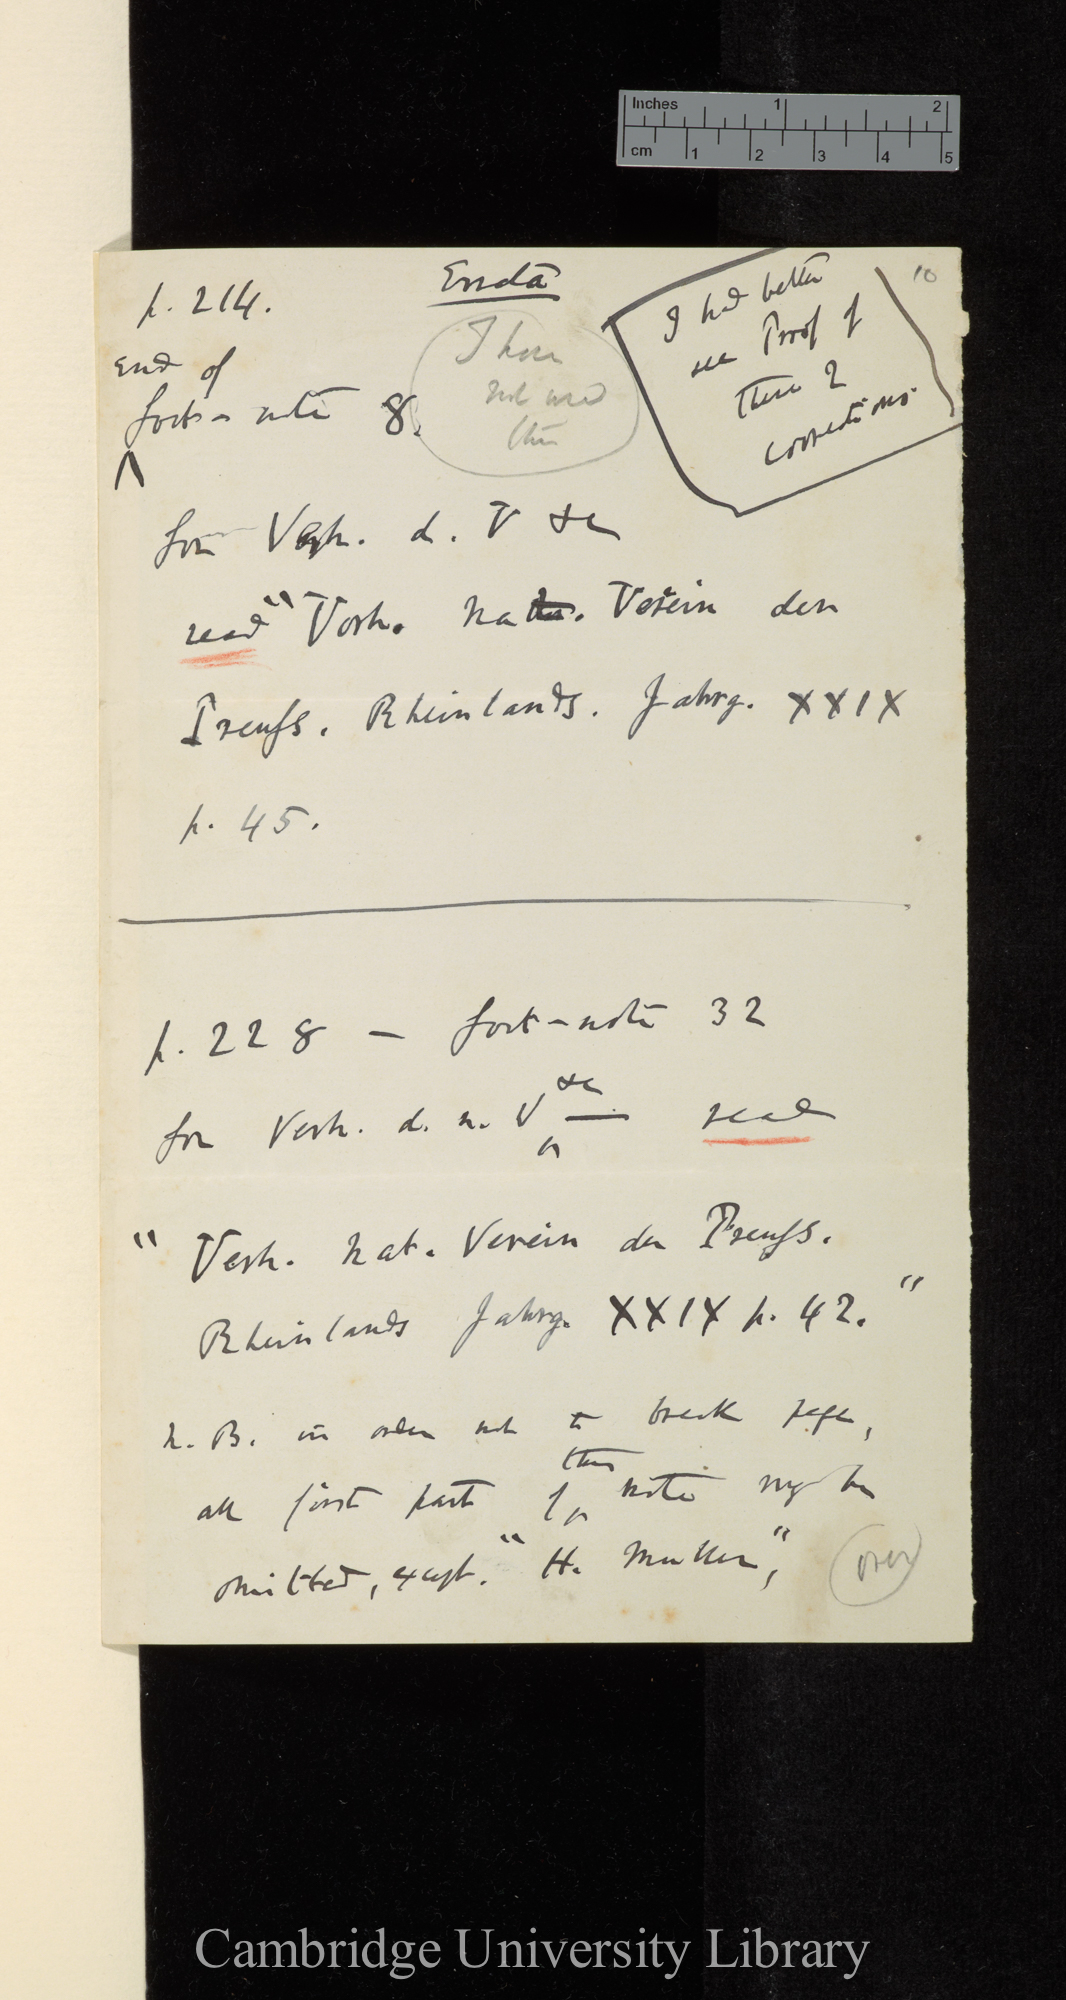 Inches 1 2
cm 1 2 3 4 5
10
Errata
p. 214.
End of
foot-note 8.
I have
not used
this
I had better
see Proof of
these 2
corrections.
for Verh. d. V &c
read "Verh. nat. Verein den
Preuss. Rheinlands. Jahrg. XXIX
p. 45.
p. 228 — foot-note 32
for Verh. d. n. V &c — read
" Verh. nat. Verein der Preuss.
Rheinlands Jahrg. XXIX p. 42."
N.B. in order not to break page,
all first part of this note may be
omitted, except. "H. Muller",
over
Cambridge University Library